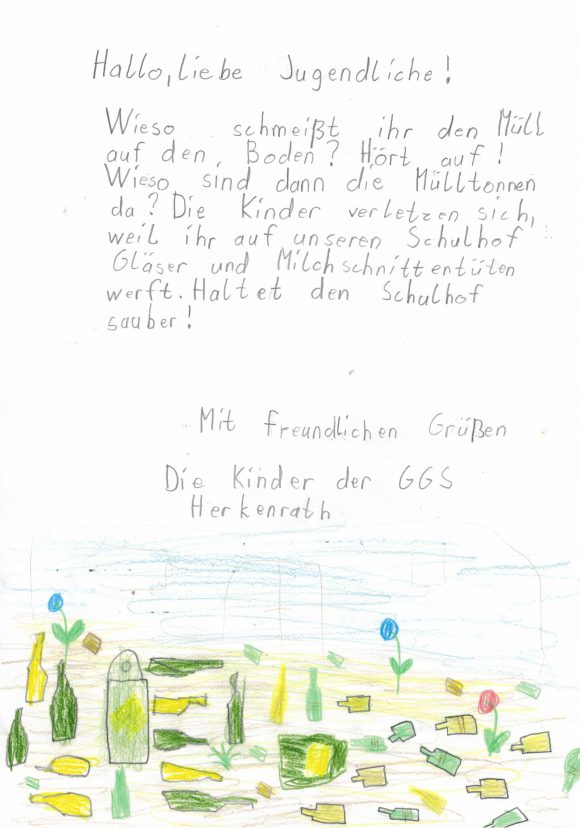 Hallo, liebe Jugendliche!
Wieso schmeißt ihr den Müll
auf den Boden? Hört auf!
Wieso sind dann die Mülltonnen
da? Die Kinder verletzen sich,
weil ihr auf unseren Schulhof
Gläser und Milchschnittentüten
werft. Haltet den Schulhof
sauber!
Mit freundlichen Grüßen
Die Kinder der GGS
Herkenrath